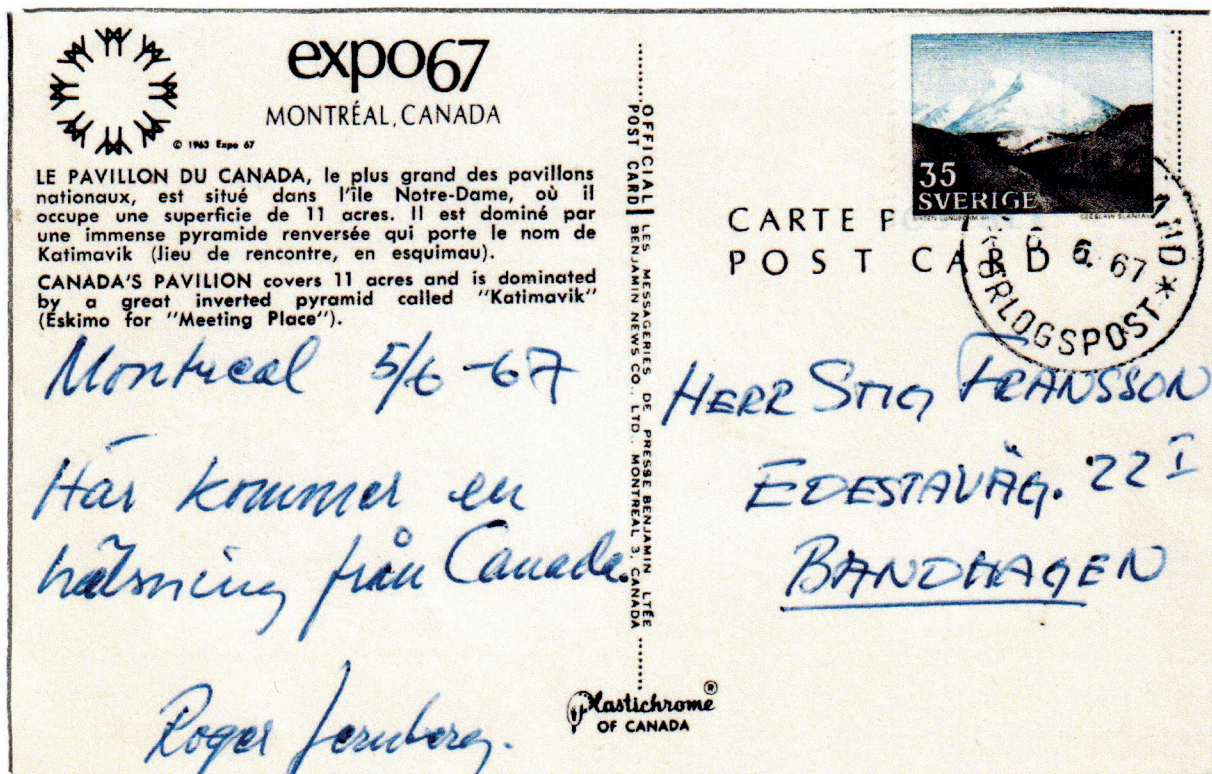 expo67
MONTRÉAL, CANADA
© 1963 Expo 67
LE PAVILLON DU CANADA, le plus grand des pavillons
nationaux, est situé dans l'île Notre-Dame, où il
occupe une superficie de 11 acres. Il est dominé par
une immense pyramide renversée qui porte le nom de
Katimavik (lieu de rencontre, en esquimau).
CANADA'S PAVILION covers 11 acres and is dominated
by a great inverted pyramid called "Katimavik"
(Eskimo for "Meeting Place").
Montreal 5/6 -67
Här kommer en
hälsning från Canada.
Roger Jernberg.
OFFICIAL LES MESSAGERIES DE PRESSE BENJAMIN LTÉE
POST CARD BENJAMIN NEWS CO., LTD., MONTREAL 3, CANADA
Plastichrome®
OF CANADA
35
SVERIGE
CZESLAW SLANIA
CARTE
POST CARD
6. 67
ÖRLOGSPOST *
HERR STIG FRANSSON
EDESTAVÄG. 22 I
BANDHAGEN